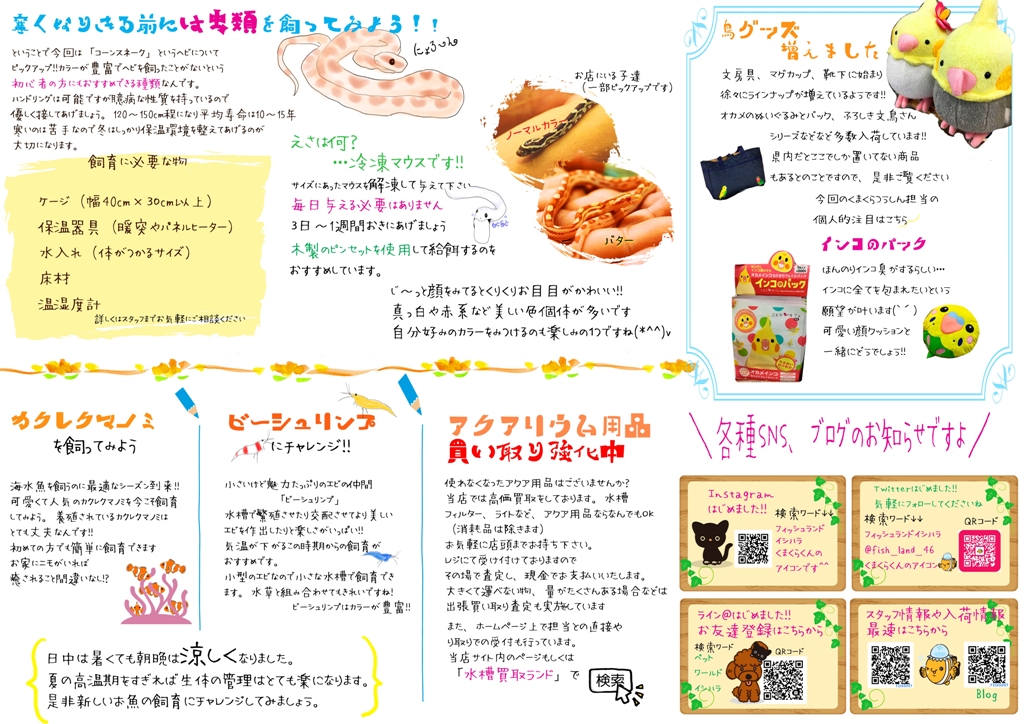 寒くなりきる前には虫類を飼ってみよう!!
ということで今回は「コーンスネーク」というヘビについて
ピックアップ!!カラーが豊富でヘビを飼ったことがないという
初心者の方にもおすすめできる種類なんです。
ハンドリングは可能ですが臆病な性質を持っているので
優しく接してあげましょう。120~150cm程になり平均寿命は10~15年
寒いのは苦手なので冬はしっかり保温環境を整えてあげるのが
大切になります。
飼育に必要な物
ケージ(幅40cm×30cm以上)
保温器具(暖突やパネルヒーター)
水入れ(体がつかるサイズ)
床材
温湿度計
詳しくはスタッフまでお気軽にご相談ください
にょろ~ん
お店にいる子達
(一部ピックアップです)
ノーマルカラー
バター
えさは何?
…冷凍マウスです!!
サイズにあったマウスを解凍して与えて下さい
毎日与える必要はありません
3日~1週間おきにあげましょう
木製のピンセットを使用して給餌するのを
おすすめしています。
じ~っと顔をみてるとくりくりお目目がかわいい!!
真っ白や赤系など美しい色個体が多いです
自分好みのカラーをみつけるのも楽しみの1つですね(*^^)v
鳥グッズ
増えました
文房具、マグカップ、靴下に始まり
徐々にラインナップが増えているようです!!
オカメのぬいぐるみとパック、ふろしき文鳥さん
シリーズなどなど多数入荷しています!!
県内だとここでしか置いてない商品
もあるとのことですので、是非ご覧ください
今回のくまくらつうしん担当の
個人的注目はこちら
インコのパック
ほんのりインコ臭がするらしい…
インコに全てを包まれたいという
願望が叶います(^^)
可愛い顔クッションと
一緒にどうでしょう!!
インコのパック
オカメインコ
カクレクマノミ
を飼ってみよう
海水魚を飼うのに最適なシーズン到来!!
可愛くて人気のカクレクマノミを今こそ飼育
してみよう。養殖されているカクレクマノミは
とても丈夫なんです!!
初めての方でも簡単に飼育できます
お家にニモがいれば
癒されること間違いなし!?
ビーシュリンプ
にチャレンジ!!
小さいけど魅力たっぷりのエビの仲間
「ビーシュリンプ」
水槽で繁殖させたり交配させてより美しい
エビを作出したりと楽しさがいっぱい!!
気温が下がるこの時期からの飼育が
おすすめです。
小型のエビなので小さな水槽で飼育でき
ます。水草と組み合わせてもきれいですね!
ビーシュリンプはカラーが豊富!!
日中は暑くても朝晩は涼しくなりました。
夏の高温期をすぎれば生体の管理はとても楽になります。
是非新しいお魚の飼育にチャレンジしてみましょう。
アクアリウム用品
買い取り強化中
使わなくなったアクア用品はございませんか?
当店では高価買取をしております。水槽
フィルター、ライトなど、アクア用品ならなんでもOK
(消耗品は除きます)
お気軽に店頭までお持ち下さい。
レジにて受け付けておりますので
その場で査定し、現金でお支払いいたします。
大きくて運べない物、量がたくさんある場合などは
出張買い取り査定も実施しています
また、ホームページ上で担当との直接や
り取りでの受付も行っています。
当店サイト内のページもしくは
「水槽買取ランド」で
検索
各種SNS、ブログのお知らせですよ
Instagram
はじめました!!
検索ワード↓↓
フィッシュランド
インハラ
くまくらくんの
アイコンです^^
Twitterはじめました!!
気軽にフォローしてくださいね
検索ワード↓↓
QRコード
フィッシュランドインハラ
@fish_land_46
くまくらくんのアイコン
ライン@はじめました!!
お友達登録はこちらから
検索ワード
ペット
ワールド
インハラ
QRコード
スタッフ情報や入荷情報
最速はこちらから
Blog